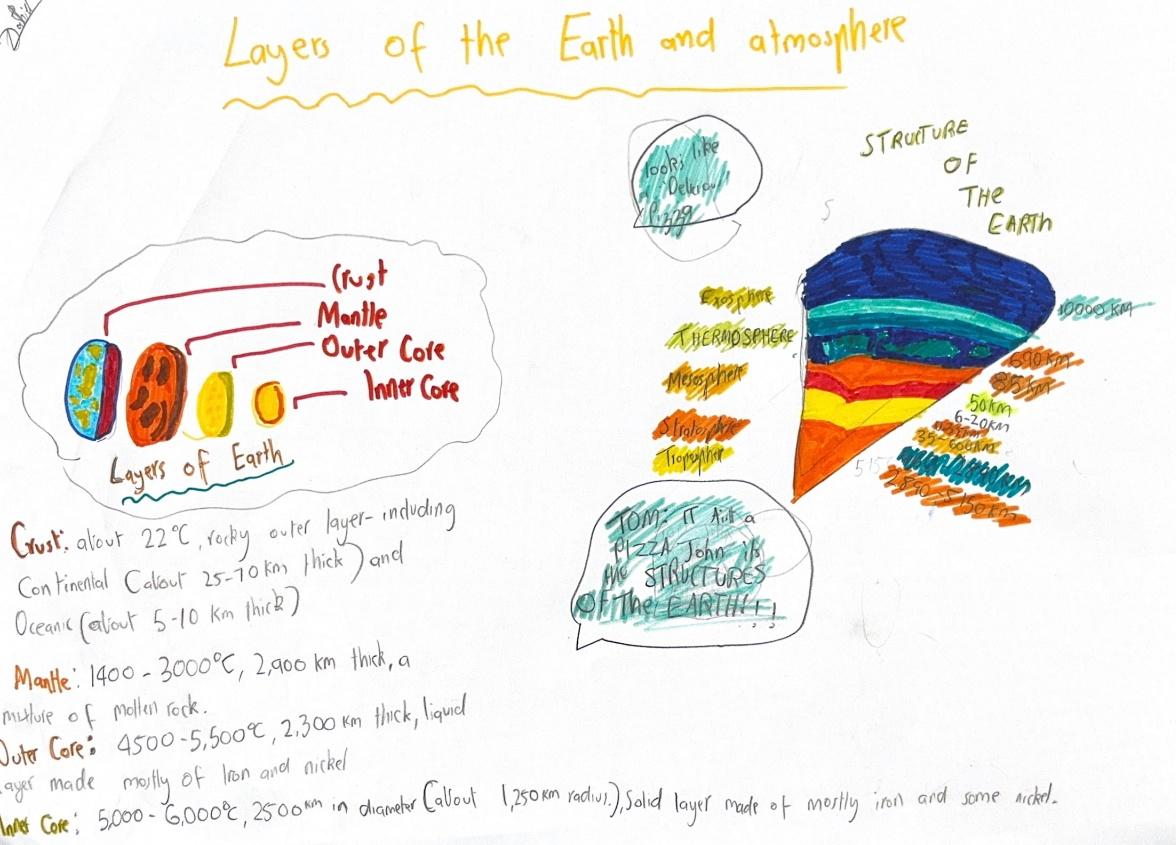 Layers of the Earth and atmosphere
looks like
a Delicious
Pizza
STRUCTURE
OF
THE
EARTH
Crust
Mantle
Outer Core
Inner Core
Layers of Earth
Exosphere
THERMOSPHERE
Mesosphere
Stratosphere
10000 KM
690 KM
85 KM
50KM
6-20KM
2890-5150KM
TOM: IT Ain't a
PIZZA John its
the STRUCTURES
OF The EARTH!!!
Crust: about 22°C, rocky outer layer- including
Continental (about 25-70 km thick) and
Oceanic (about 5-10 km thick)
Mantle: 1400-3000°C, 2,900 km thick, a
mixture of molten rock.
Outer Core: 4500-5,500°C, 2,300 km thick, liquid
layer made mostly of Iron and nickel
Inner Core: 5,000-6,000°C, 2500km in diameter (about 1,250 km radius.), Solid layer made of mostly iron and some nickel.